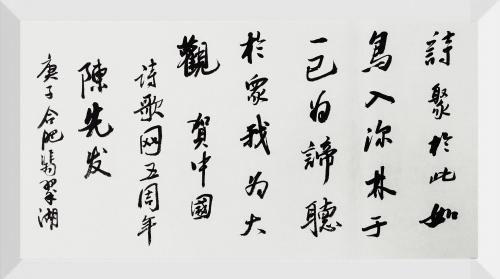 詩聚於此如
鳥入深林于
一己为諦聽
於衆我为大
觀 賀中國
诗歌网五周年
陳先发
庚子合肥翡翠湖